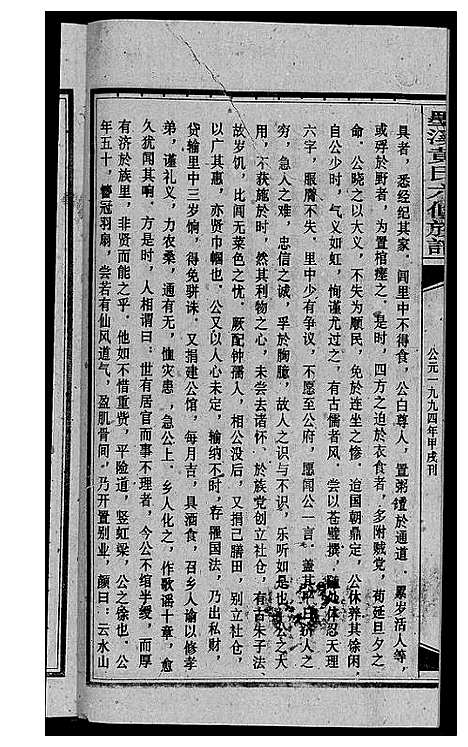 墨溪黄氏六修族谱
公元一九九四年甲戌刊
具者，悉经纪其家。闾里中不得食，公白尊人，置粥饘於通道。累岁活人等，
或殍於野者，为置棺瘗之。是时，四方之迫於衣食者，多附贼党，苟延旦夕之
命。公晓之以大义，不失为顺民，免於连坐之惨。迨国朝鼎定，公休养其馀闲，
自公少时，气义如虹，恂谨尤过之，有古儒者风。尝以苍璧撰，随处体忍天理
六字，服膺不失。里中少有争议，不愿至公府，愿闻公一言。盖其平日济人之
穷，急人之难，忠信之诚，孚於胸臆，故人之识与不识，乐听如是也。公之大
用，不获施於时，然其利物之心，未尝去诸怀、於族党创立社仓，有古朱子法、
故岁饥，比闾无菜色之忧。厥配钟孺人，相公没后，又捐己膳田，别立社仓，
以广其惠，亦贤巾帼也。公又以人心未定，输纳不时，存罹国法，乃出私财，
贷输里中三岁饷，得免骈诛。又捐建公馆，每月吉，具酒食，召乡人以修孝
弟，谨礼义，力农桑，通有无，恤灾患，急公上。乡人化之，作歌谣十章，愈
久犹闻其响。方是时，人相谓曰：世有居官而事不理者，今公不绾半绶，而厚
有济於族里，非贤而能之乎。他如不惜重赀，平险道，竖虹梁，公之馀也。公
年五十，簪冠羽扇，尝若有仙风道气，盈肌骨间，乃开置别业，颜曰：云水山